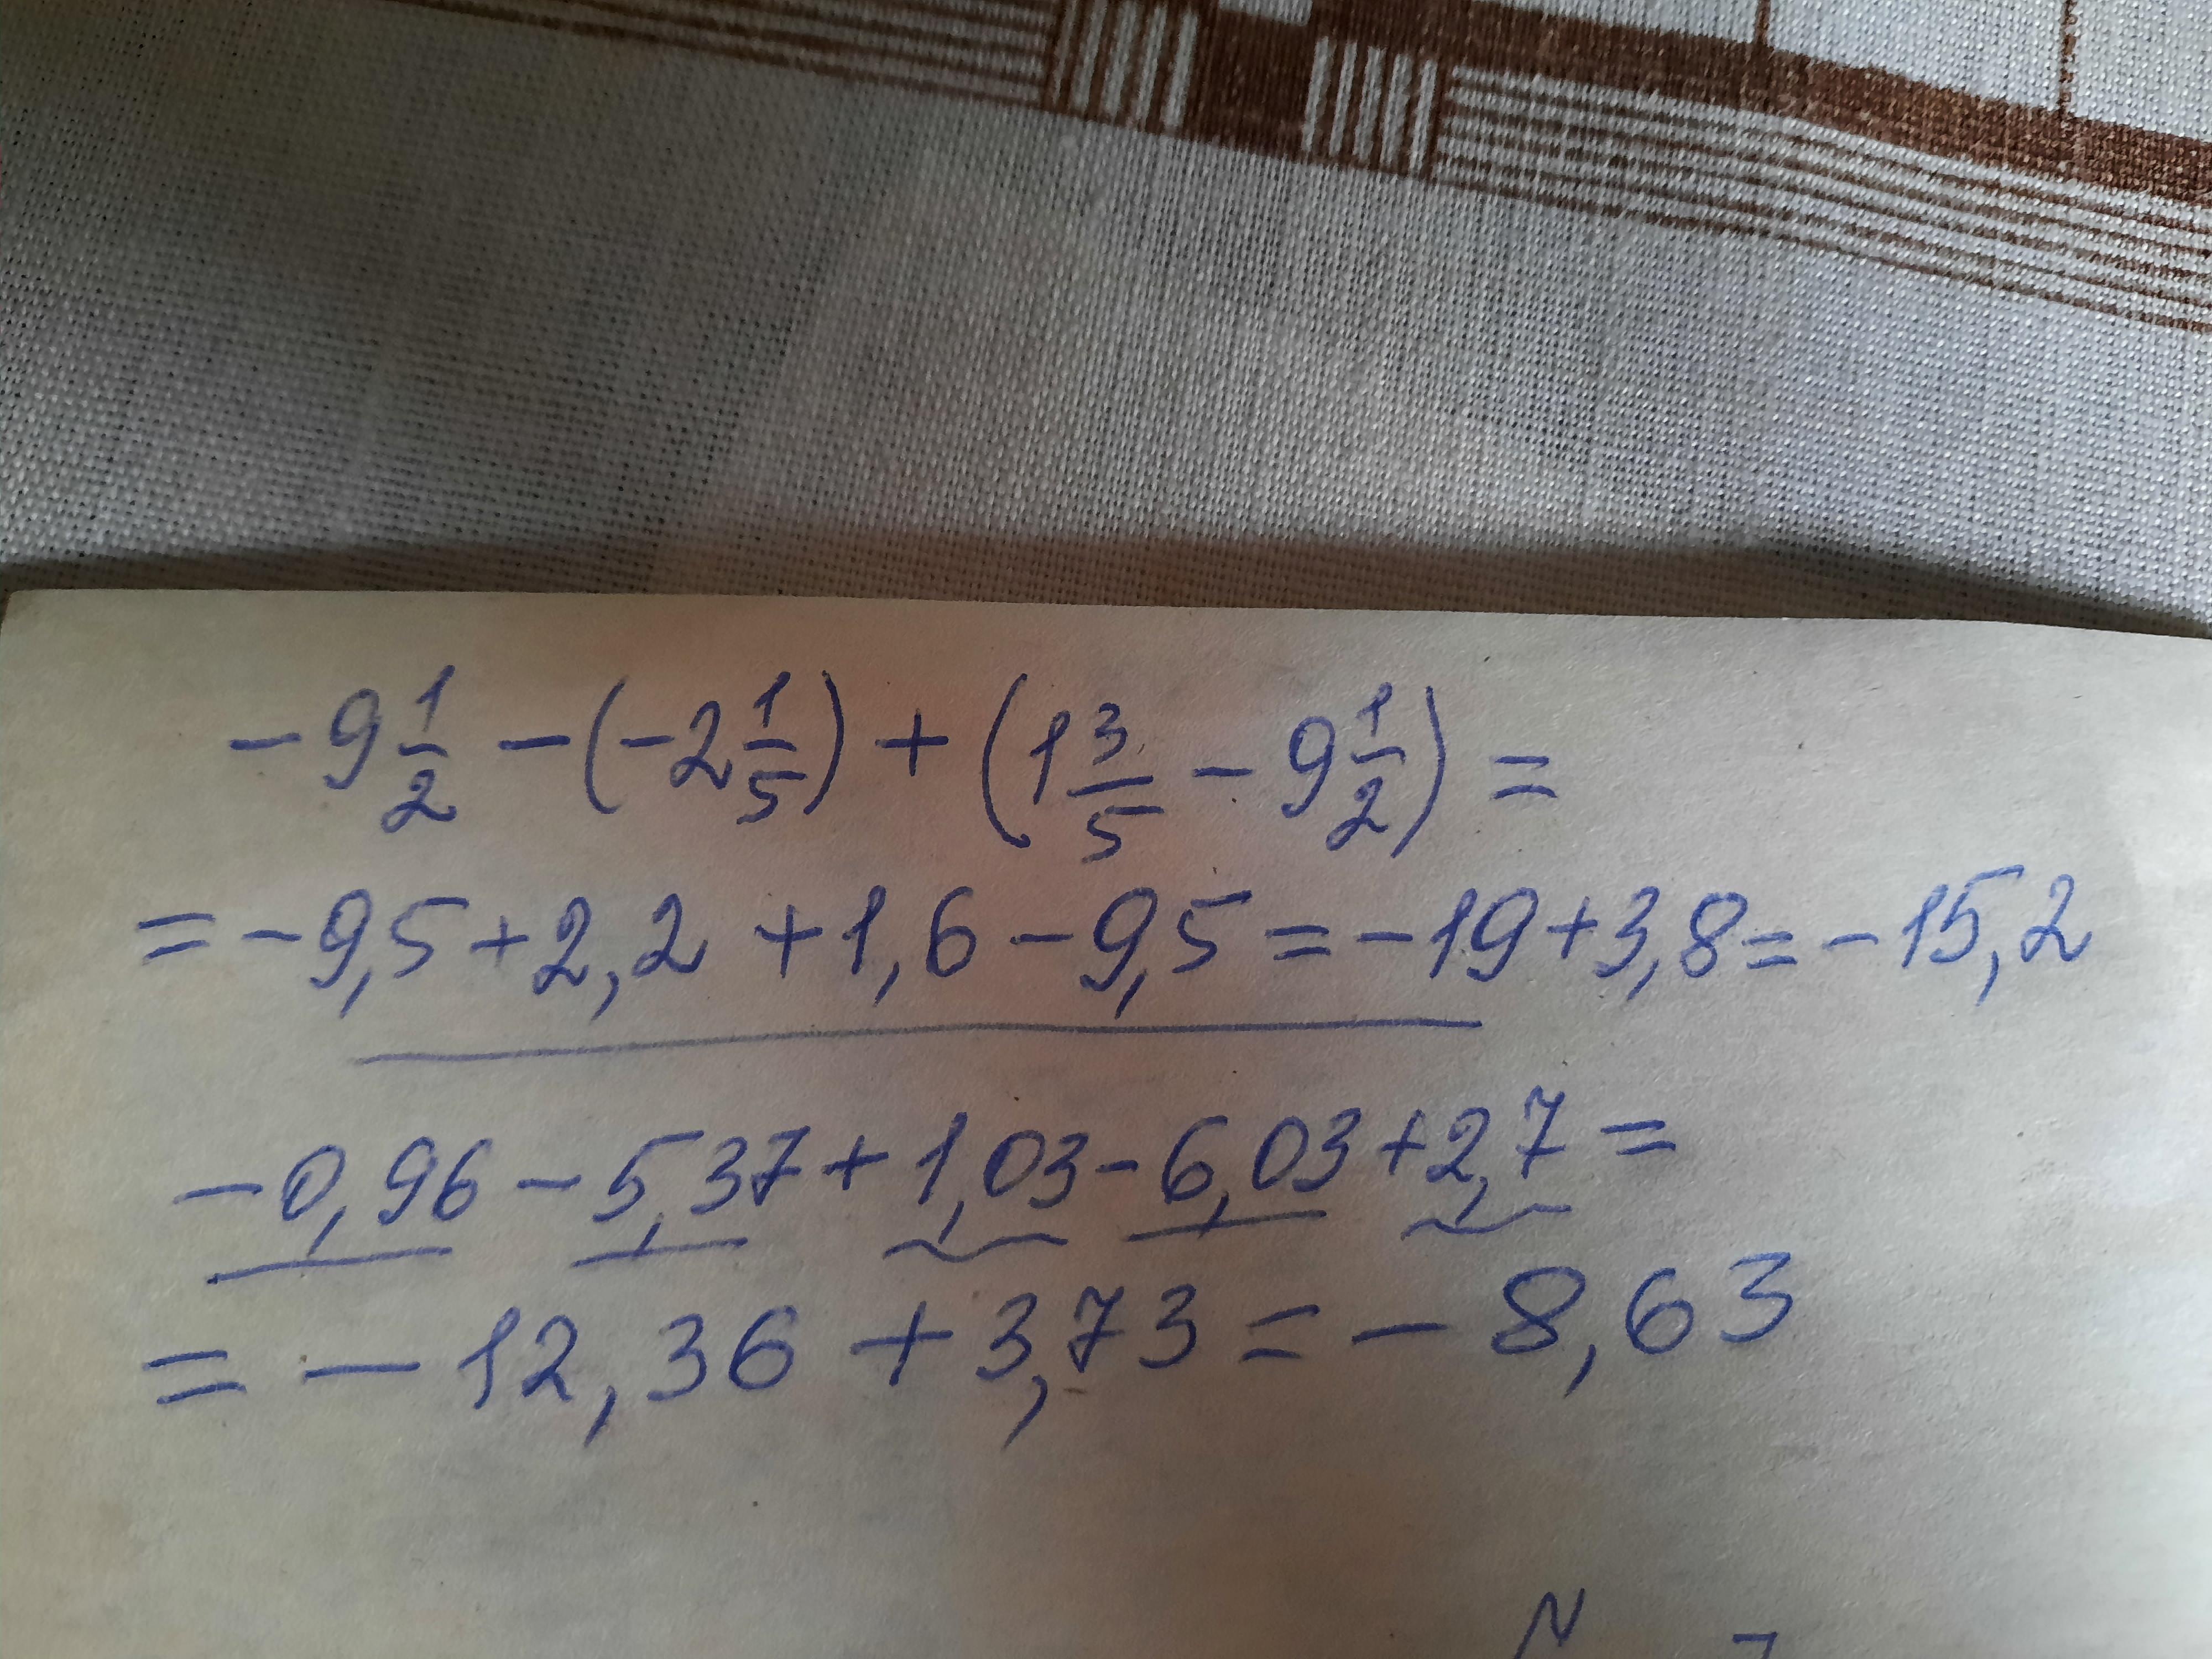 -9 1/2 - (-2 1/5) + (1 3/5 - 9 1/2) =
= -9,5 + 2,2 + 1,6 - 9,5 = -19 + 3,8 = -15,2
-0,96 - 5,37 + 1,03 - 6,03 + 2,7 =
= -12,36 + 3,73 = -8,63
N